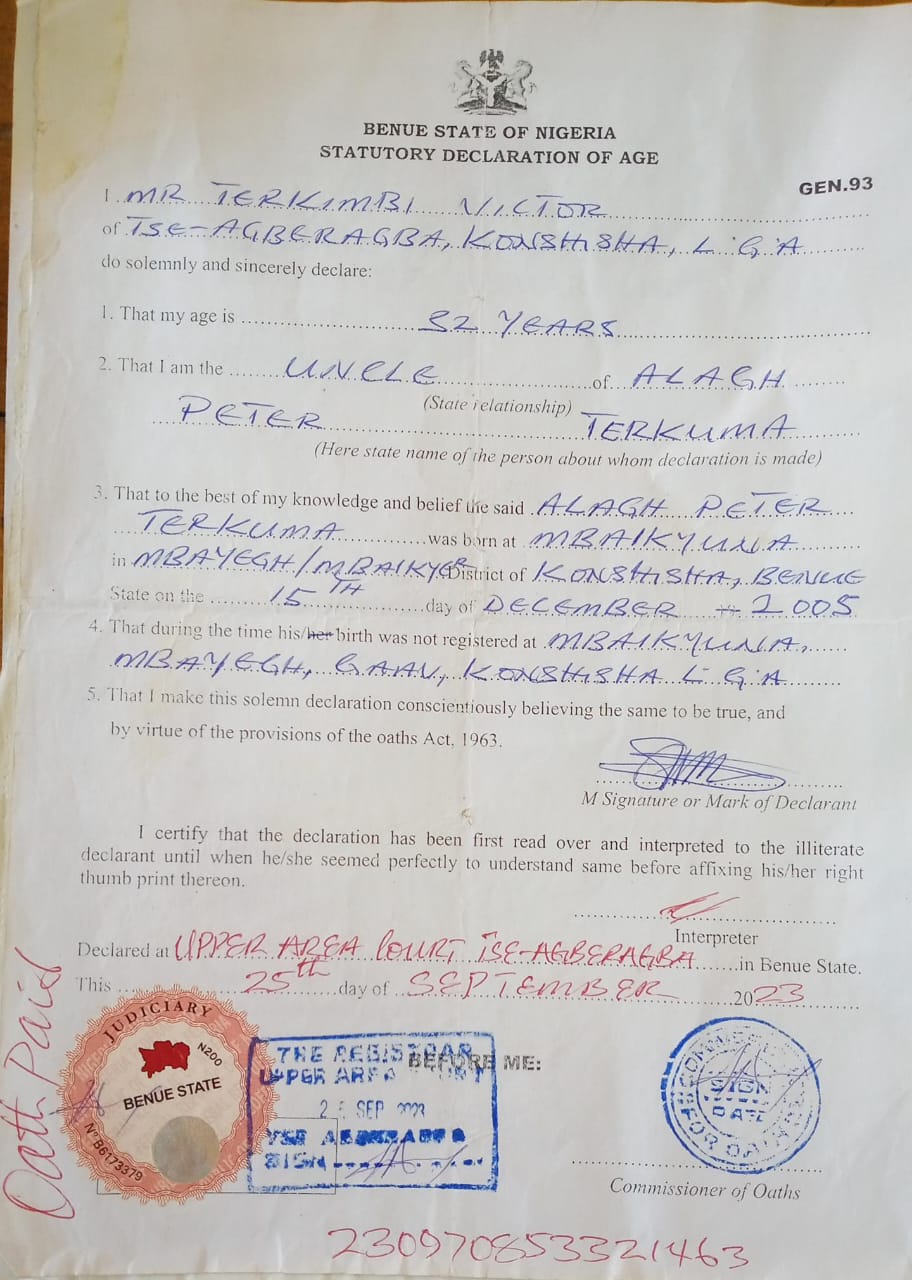 BENUE STATE OF NIGERIA
STATUTORY DECLARATION OF AGE
GEN.93
I MR TERKIMBI VICTOR
of TSE-AGBERAGBA, KONSHISHA, L G A
do solemnly and sincerely declare:
1. That my age is 32 YEARS
2. That I am the UNCLE of ALAGH
(State relationship)
PETER TERKUMA
(Here state name of the person about whom declaration is made)
3. That to the best of my knowledge and belief the said ALAGH PETER
TERKUMA was born at MBAIKYUNA
in MBAYEGH/ District of KONSHISHA, BENUE
State on the 15TH day of DECEMBER 2005
4. That during the time his/her birth was not registered at MBAIKYUNA,
MBAYEGH, GAAV, KONSHISHA L G A
5. That I make this solemn declaration conscientiously believing the same to be true, and
by virtue of the provisions of the oaths Act, 1963.
M Signature or Mark of Declarant
I certify that the declaration has been first read over and interpreted to the illiterate
declarant until when he/she seemed perfectly to understand same before affixing his/her right
thumb print thereon.
Interpreter
Declared at UPPER AREA COURT TSE-AGBERAGBA in Benue State.
This 25th day of SEPTEMBER 2023
Oath Paid
JUDICIARY
N200
BENUE STATE
No B6173379
THE REGISTRAR
UPPER AREA
SEP 2023
SIGN
BEFORE ME:
SIGN
DATE
FOR OATHS
Commissioner of Oaths
230970853321463